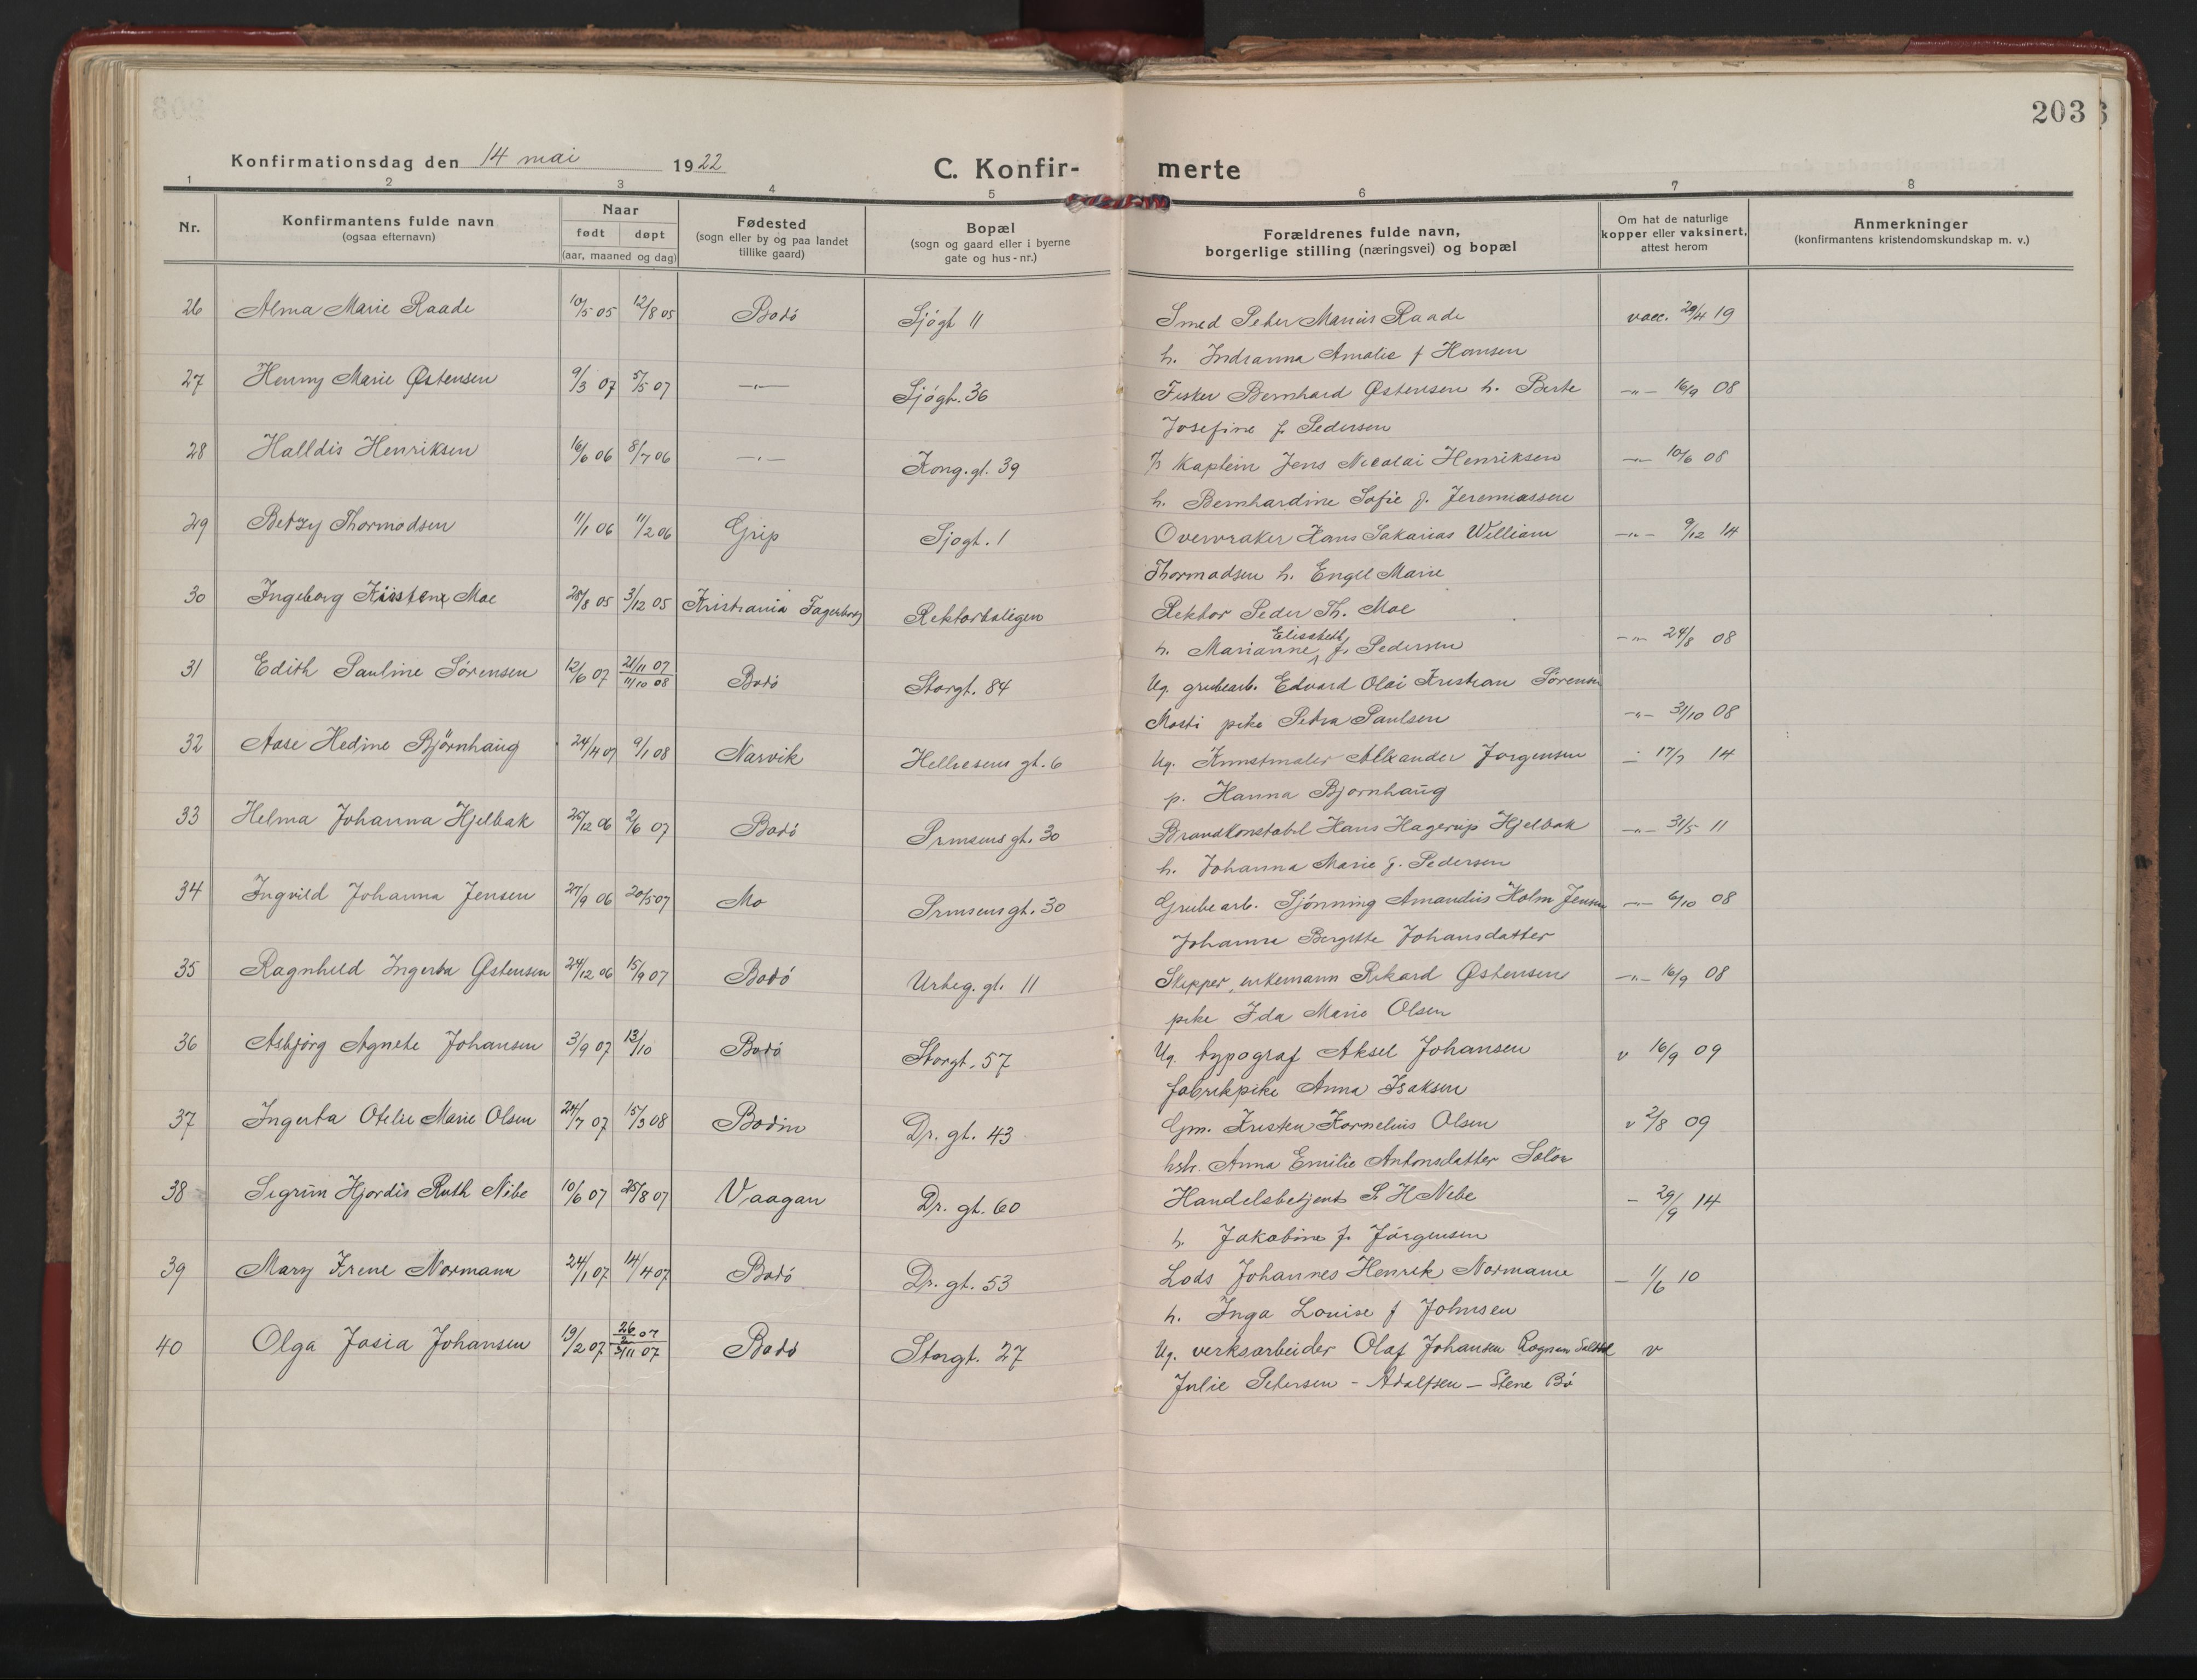 203
Konfirmationsdag den 14 mai 1922
C. Konfir- merte
1 2 3 4 5 6 7 8
Nr.
Konfirmantens fulde navn
(ogsaa efternavn)
Naar
født døpt
(aar, maaned og dag)
Fødested
(sogn eller by og paa landet
tillike gaard)
Bopæl
(sogn og gaard eller i byerne
gate og hus-nr.)
Forældrenes fulde navn,
borgerlige stilling (næringsvei) og bopæl
Om hat de naturlige
kopper eller vaksinert,
attest herom
Anmerkninger
(konfirmantens kristendomskundskap m. v.)
26 Alma Marie Raade 10/5 05 12/8 05 Bodó Sjógt 11 Smed Peder Marius Raade vacc. 29/4 19
h. Indianna Amalie f Hansen
27 Henny Marie Østensen 9/3 07 5/5 07 -"- Sjógt. 36 Fisker Bernhard Østensen h. Berte -"- 16/9 08
Josefine f. Pedersen
28 Halldis Henriksen 16/6 06 8/7 06 -"- Kong. gt. 39 Kaptein Jens Nicolai Henriksen -"- 10/6 08
h. Bernhardine Sofie f. Jeremiassen
29 Betzy Thormodsen 11/1 06 11/2 06 Grip Sjogt. 1 Overvraker Hans Sakarias William -"- 9/12 14
Thormodsen h. Engel Marie
30 Ingeborg Moe 28/8 05 3/12 05 Kristiania Fagerborg Rektorboligen Rektor Peder Th. Moe
h. Marianne Elisabeth f. Pedersen -"- 24/8 08
31 Edith Pauline Sørensen 12/6 07 21/11 07 11/10 08 Bodó Storgt. 84 Ug. grubearb. Edvard Olai Kristian Sørensen
pike Petra Paulsen -"- 31/10 08
32 Aase Hedine Bjørnhaug 24/4 07 9/1 08 Narvik Hellesens gt. 6 Ug. Kunstmaler Alexander Jorgensen 17/7 14
p. Hanna Bjornhaug
33 Helma Johanna Hjelbak 25/12 06 2/6 07 Bodó Prinsens gt. 30 Brandkonstabel Hans Hagerup Hjelbak -"- 31/5 11
h. Johanna Marie f. Pedersen
34 Ingvild Johanna Jensen 27/9 06 20/5 07 Mo Prinsens gt. 30 Grubearb. Sjønning Amandus Holm Jensen -"- 6/10 08
Johanne Bergitte Johansdatter
35 Ragnhild Ingerba Østensen 24/12 06 15/9 07 Bodó gt. 11 Skipper, enkemann Rikard Østensen -"- 16/9 08
pike Ida Marie Olsen
36 Asbjørg Agnete Johansen 3/9 07 13/10 Bodó Storgt. 57 Ug. typograf Aksel Johansen v 16/9 09
fabrikpike Anna Isaksen
37 Ingerta Otelie Marie Olsen 24/7 07 15/3 08 Bodin Dr. gt. 43 Gm. Kristen Kornelius Olsen v 2/8 09
hstr. Anna Emilie Antonsdatter
38 Sigrun Hjordis Ruth Nibe 10/6 07 25/8 07 Vaagan Dr. gt. 60 Handelsbetjent P. H Nibe - 29/9 14
h. Jakobine f. Jørgensen
39 Mary Irene Normann 24/1 07 14/4 07 Bodó Dr. gt. 53 Lods Johannes Henrik Normann - 11/6 10
h. Inga Louise f Johnsen
40 Olga Josia Johansen 19/2 07 3/11 07 Bodó Storgt. 27 Ug. verksarbeider Olaf Johansen Rognan v
Julie Petersen - Adolfsen - Stene Bó